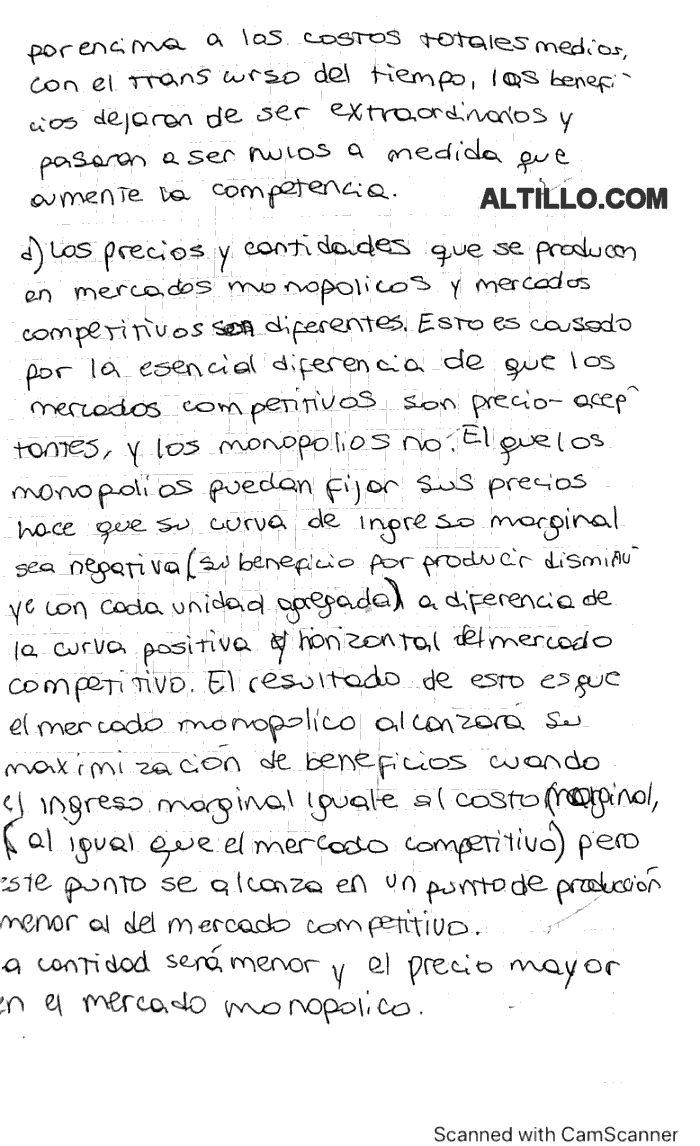 por encima a los costos totales medios,
con el transcurso del tiempo, los benefi-
cios dejaran de ser extraordinarios y
pasaran a ser nulos a medida que
aumente la competencia.
ALTILLO.COM
d) Los precios y cantidades que se producen
en mercados monopolicos y mercados
competitivos son diferentes. Esto es causado
por la esencial diferencia de que los
mercados competitivos son precio-acep-
tantes, y los monopolios no. El que los
monopolios puedan fijar sus precios
hace que su curva de ingreso marginal
sea negativa (su beneficio por producir disminu-
ye con cada unidad agregada) a diferencia de
la curva positiva y horizontal del mercado
competitivo. El resultado de esto es que
el mercado monopolico alcanzará su
maximización de beneficios cuando
el ingreso marginal iguale al costo marginal,
(al igual que el mercado competitivo) pero
este punto se alcanza en un punto de producción
menor al del mercado competitivo.
a cantidad será menor y el precio mayor
en el mercado monopolico.
Scanned with CamScanner